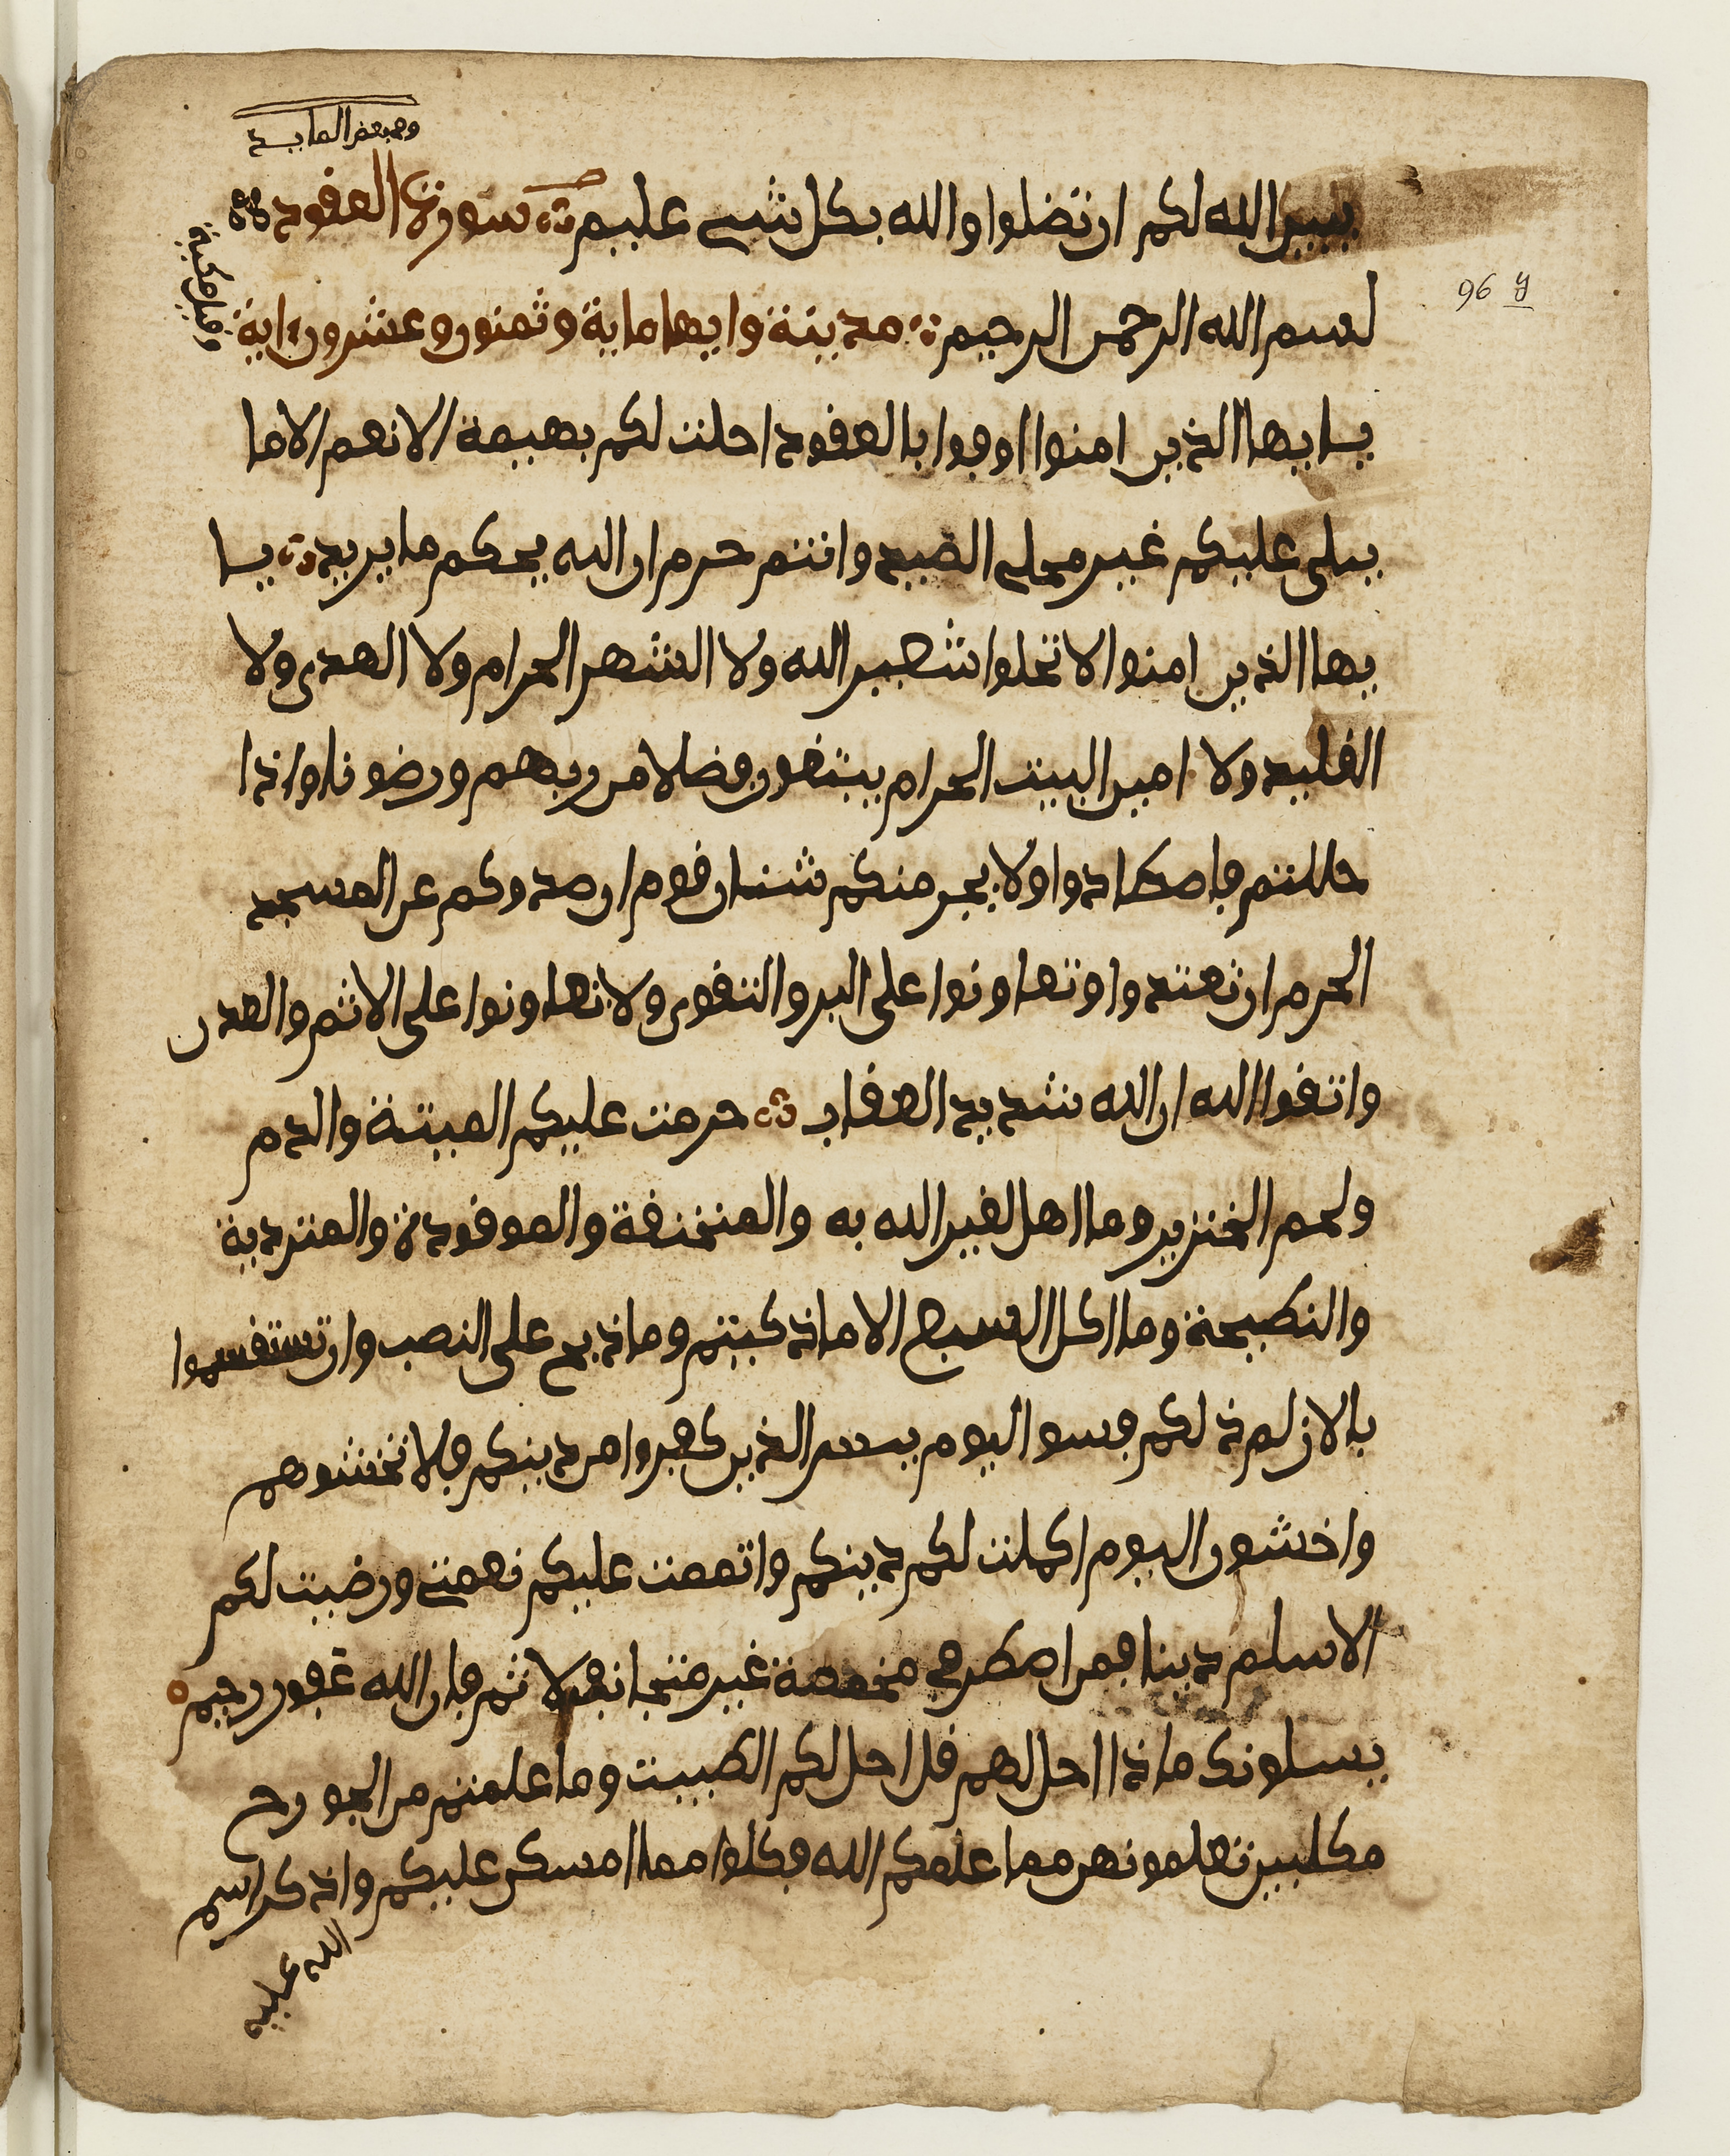 وهي بعض المايدة
يبين الله لكم ان تضلوا والله بكل شى عليم سورة العقود
وقيل مكية
بسم الله الرحمن الرحيم مدينة وايها ماية وثمنون وعشرون اية
96
يا ايها الذين امنوا اوفوا بالعقود احلت لكم بهيمة الانعم الا ما
يتلى عليكم غير محلى الصيد وانتم حرم ان الله يحكم ما يريد يا
يها الذين امنوا لا تحلوا شعير الله ولا الشهر الحرام ولا الهدى ولا
القليد ولا امين البيت الحرام يبتغون فضلا من ربهم ورضونا واذا
حللتم فاصطادوا ولا يجرمنكم شنان قوم ان صدوكم عن المسجد
الحرم ان تعتدوا وتعاونوا على البر والتقوى ولا تعاونوا على الاثم والعدن
واتقوا الله ان الله شديد العقاب حرمت عليكم الميتة والدم
ولحم الخنزير وما اهل لغير الله به والمنخنقة والموقودة والمتردية
والنطيحة وما اكل السبع الا ما ذكيتم وما ذبح على النصب وان تستقسموا
بالازلم ذلكم فسو اليوم يىس الذين كفروا من دينكم فلا تخشوهم
واخشون اليوم اكملت لكم دينكم واتممت عليكم نعمتى ورضيت لكم
الاسلم دينا فمن اضطر فى مخمصة غير متجانف لاثم فان الله غفور رحيم
يسلونك ماذا احل لهم قل احل لكم الطيبت وما علمتم من الجورح
مكلبين تعلمونهن مما علمكم الله فكلوا مما امسكن عليكم واذكر اسم
الله عليه